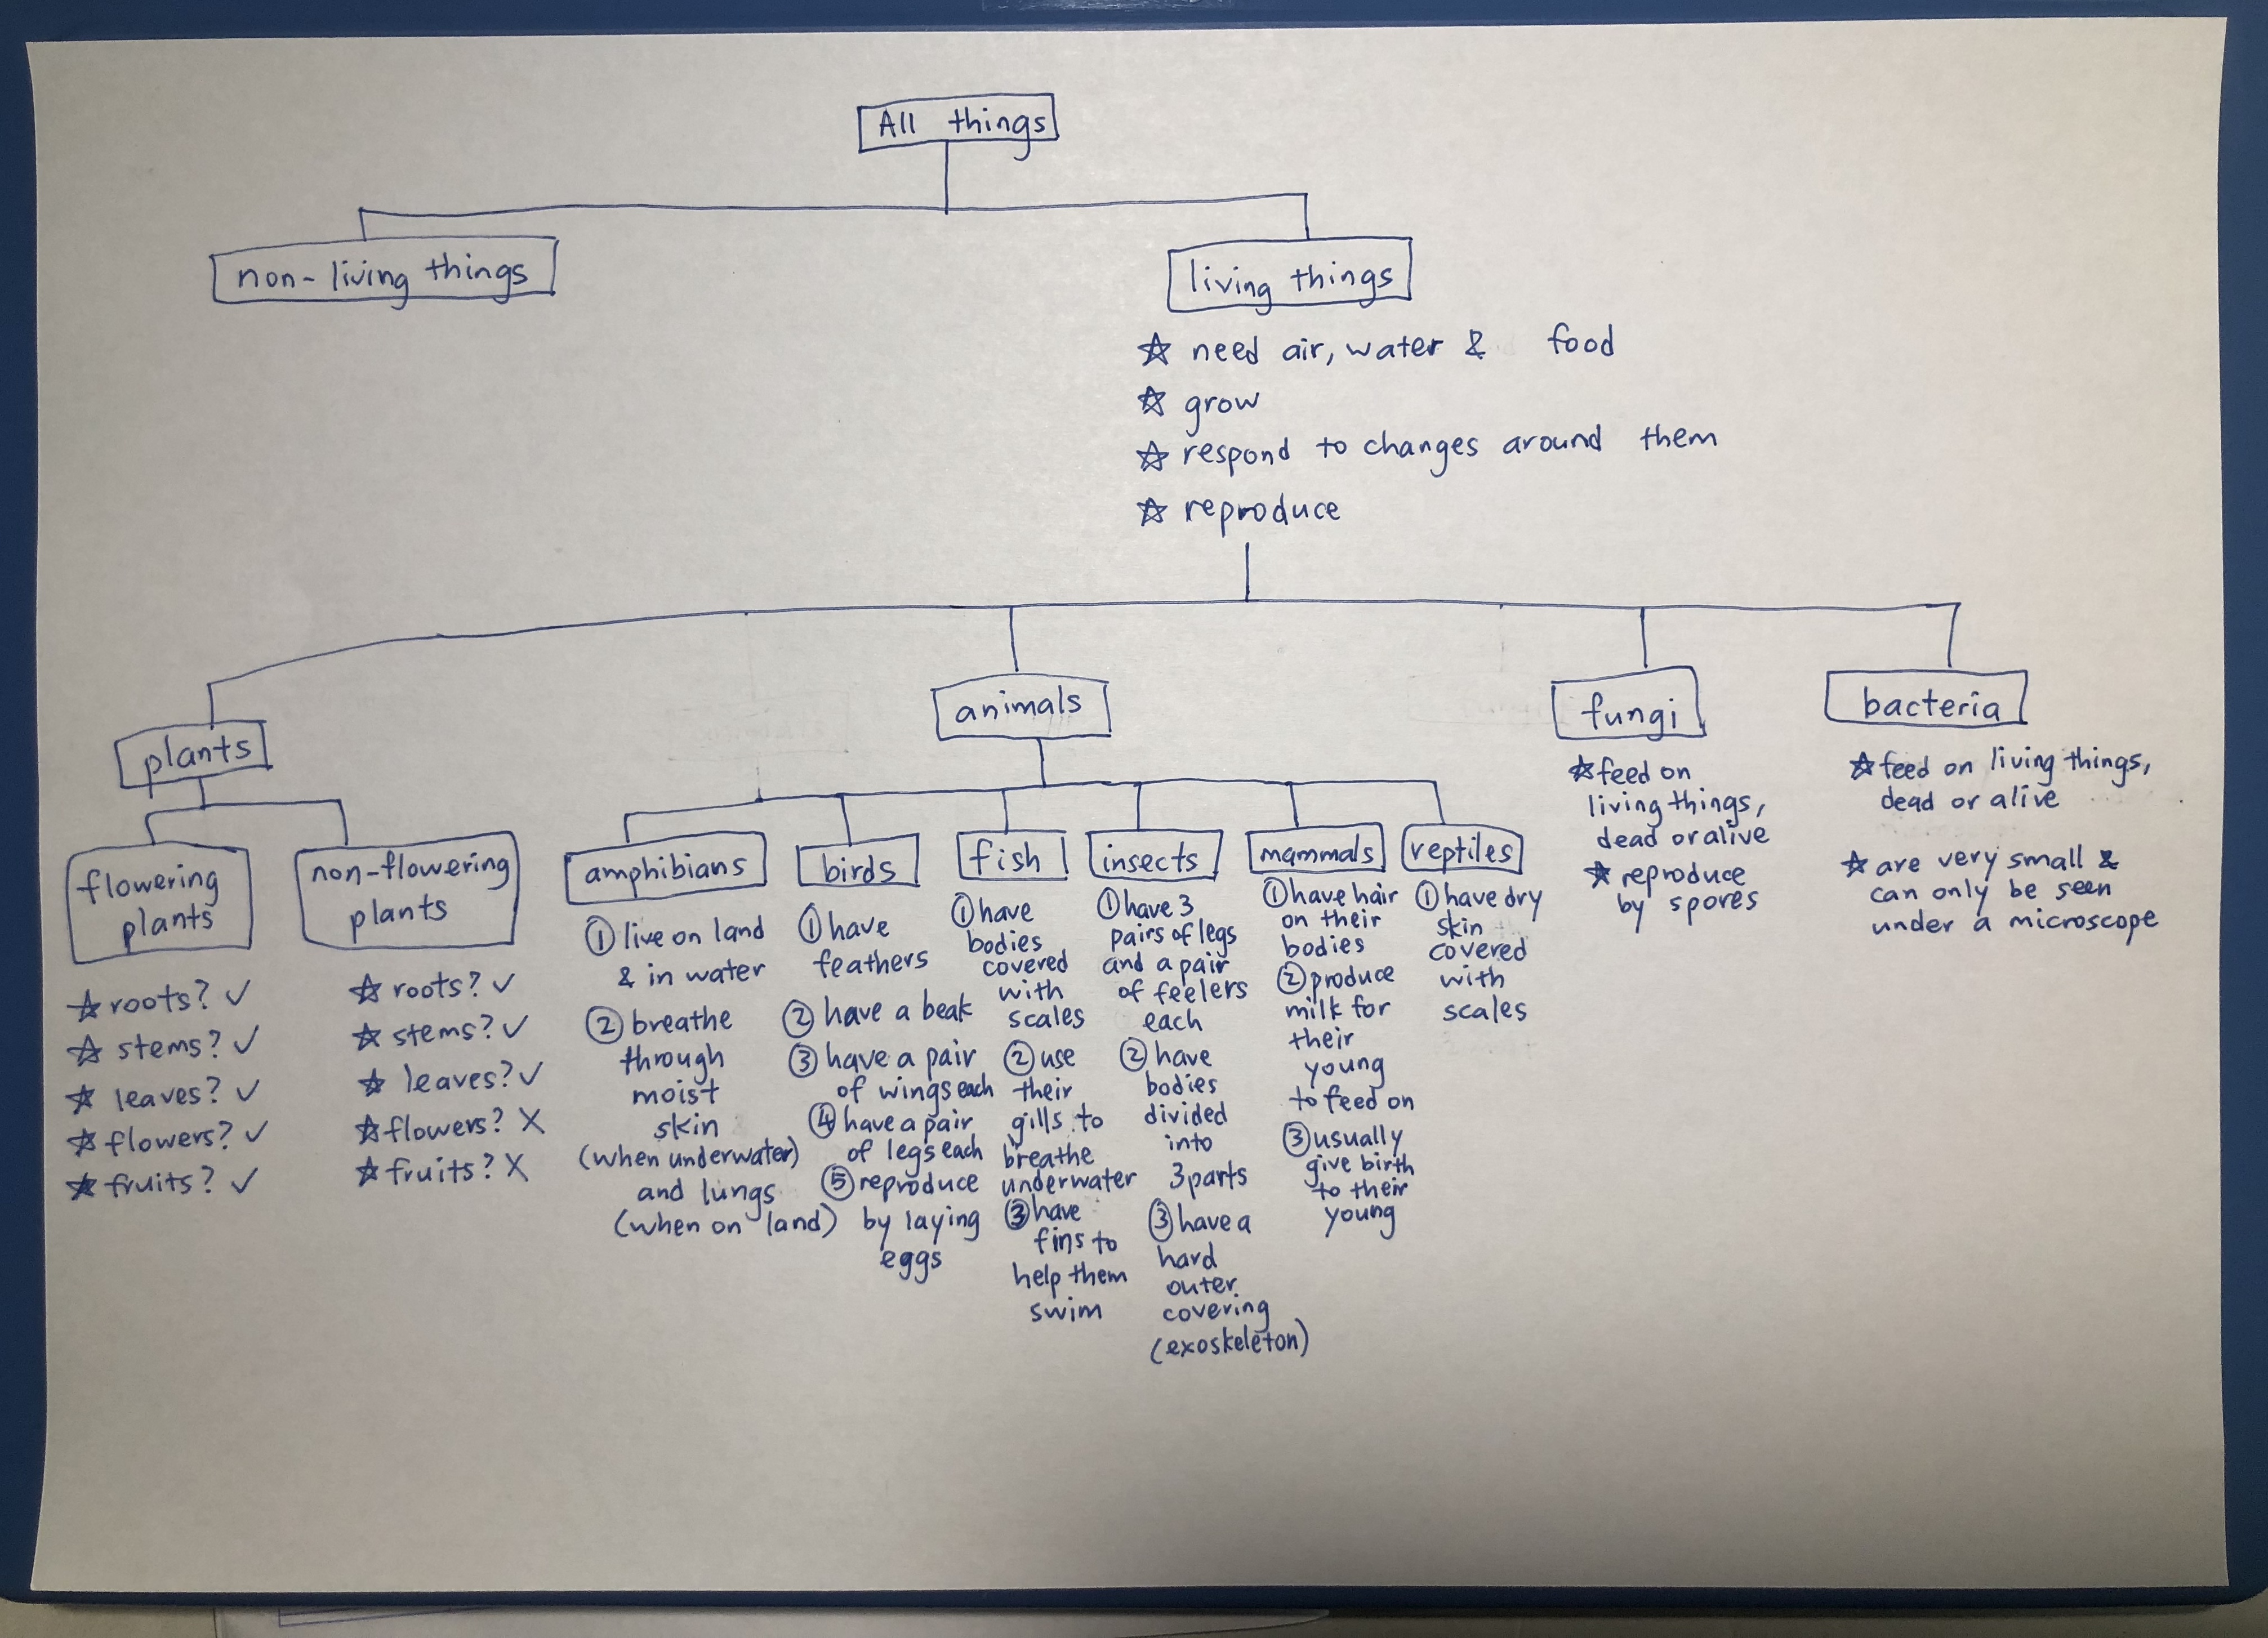 All things
non-living things
living things
☆ need air, water & food
☆ grow
☆ respond to changes around them
☆ reproduce
plants
animals
fungi
bacteria
flowering
plants
☆ roots? ✓
☆ stems? ✓
☆ leaves? ✓
☆ flowers? ✓
☆ fruits? ✓
non-flowering
plants
☆ roots? ✓
☆ stems? ✓
☆ leaves? ✓
☆ flowers? X
☆ fruits? X
amphibians
① live on land
& in water
② breathe
through
moist
skin
(when underwater)
and lungs
(when on land)
birds
① have
feathers
② have a beak
③ have a pair
of wings each
④ have a pair
of legs each
⑤ reproduce
by laying
eggs
fish
① have
bodies
covered
with
scales
② use
their
gills to
breathe
underwater
③ have
fins to
help them
swim
insects
① have 3
pairs of legs
and a pair
of feelers
each
② have
bodies
divided
into
3 parts
③ have a
hard
outer
covering
(exoskeleton)
mammals
① have hair
on their
bodies
② produce
milk for
their
young
to feed on
③ usually
give birth
to their
young
reptiles
① have dry
skin
covered
with
scales
☆ feed on
living things,
dead or alive
☆ reproduce
by spores
☆ feed on living things,
dead or alive
☆ are very small &
can only be seen
under a microscope